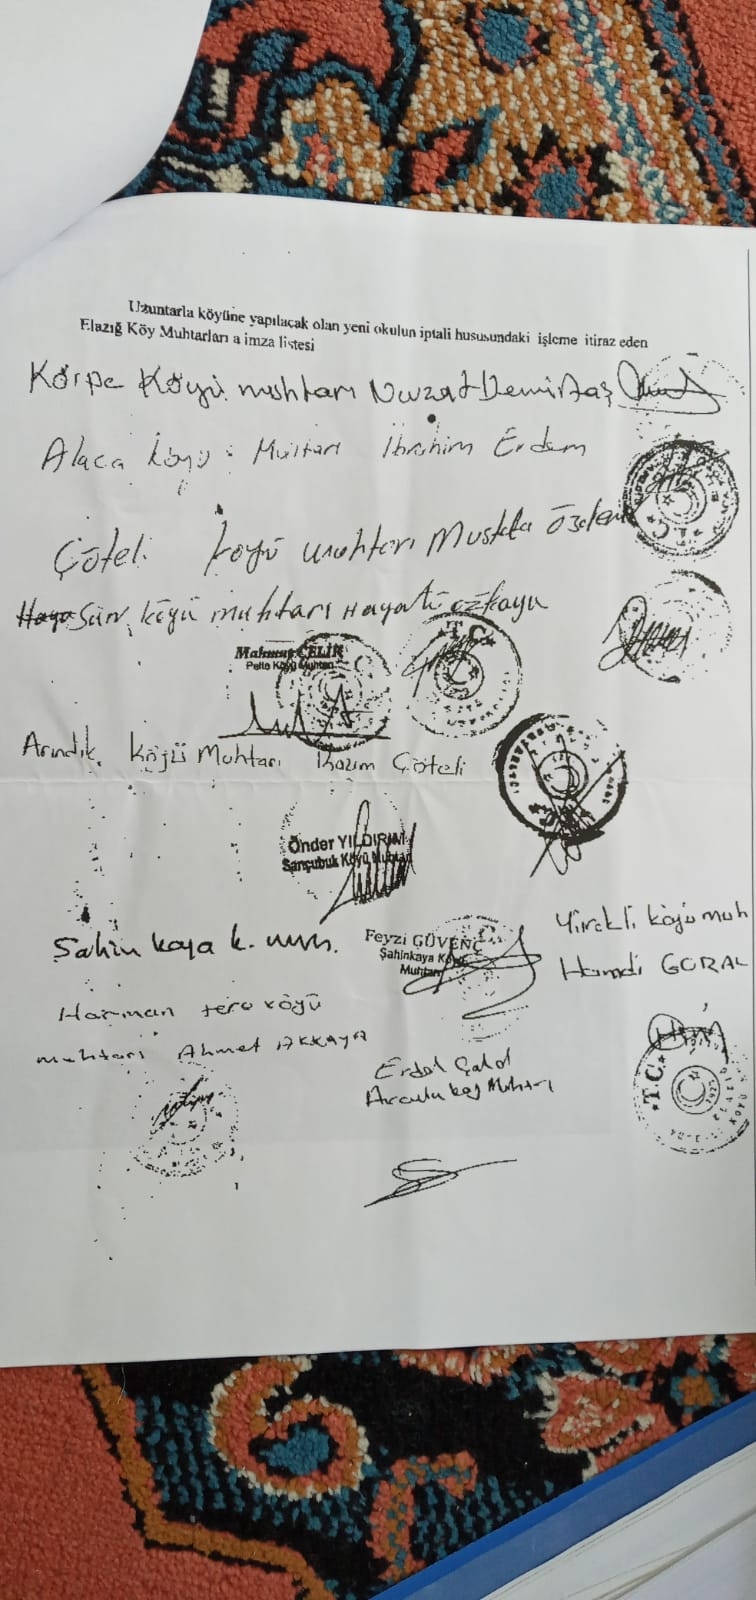 Uzuntarla köyüne yapılacak olan yeni okulun iptali hususundaki işleme itiraz eden
Elazığ Köy Muhtarları a imza listesi
Körpe Köyü muhtarı Nevzat Demirtaş
Alaca köyü: Muhtarı İbrahim Erdem
Çöteli köyü muhtarı Mustafa
Sün köyü muhtarı Hayati özkaya
T.C.
Mahmut ÇELİK
Pelte Köyü Muhtarı
Arındık Köyü Muhtarı Kazım Çöteli
Önder YILDIRIM
Sarıçubuk Köyü Muhtarı
Şahin kaya k. muh.
Feyzi GÜVENÇ
Şahinkaya Köyü
Muhtarı
Yürekli köyü muh
Hamdi GÖRAL
Harman tere köyü
muhtarı Ahmet AKKAYA
Erdal
köy Muhtarı
T.C.